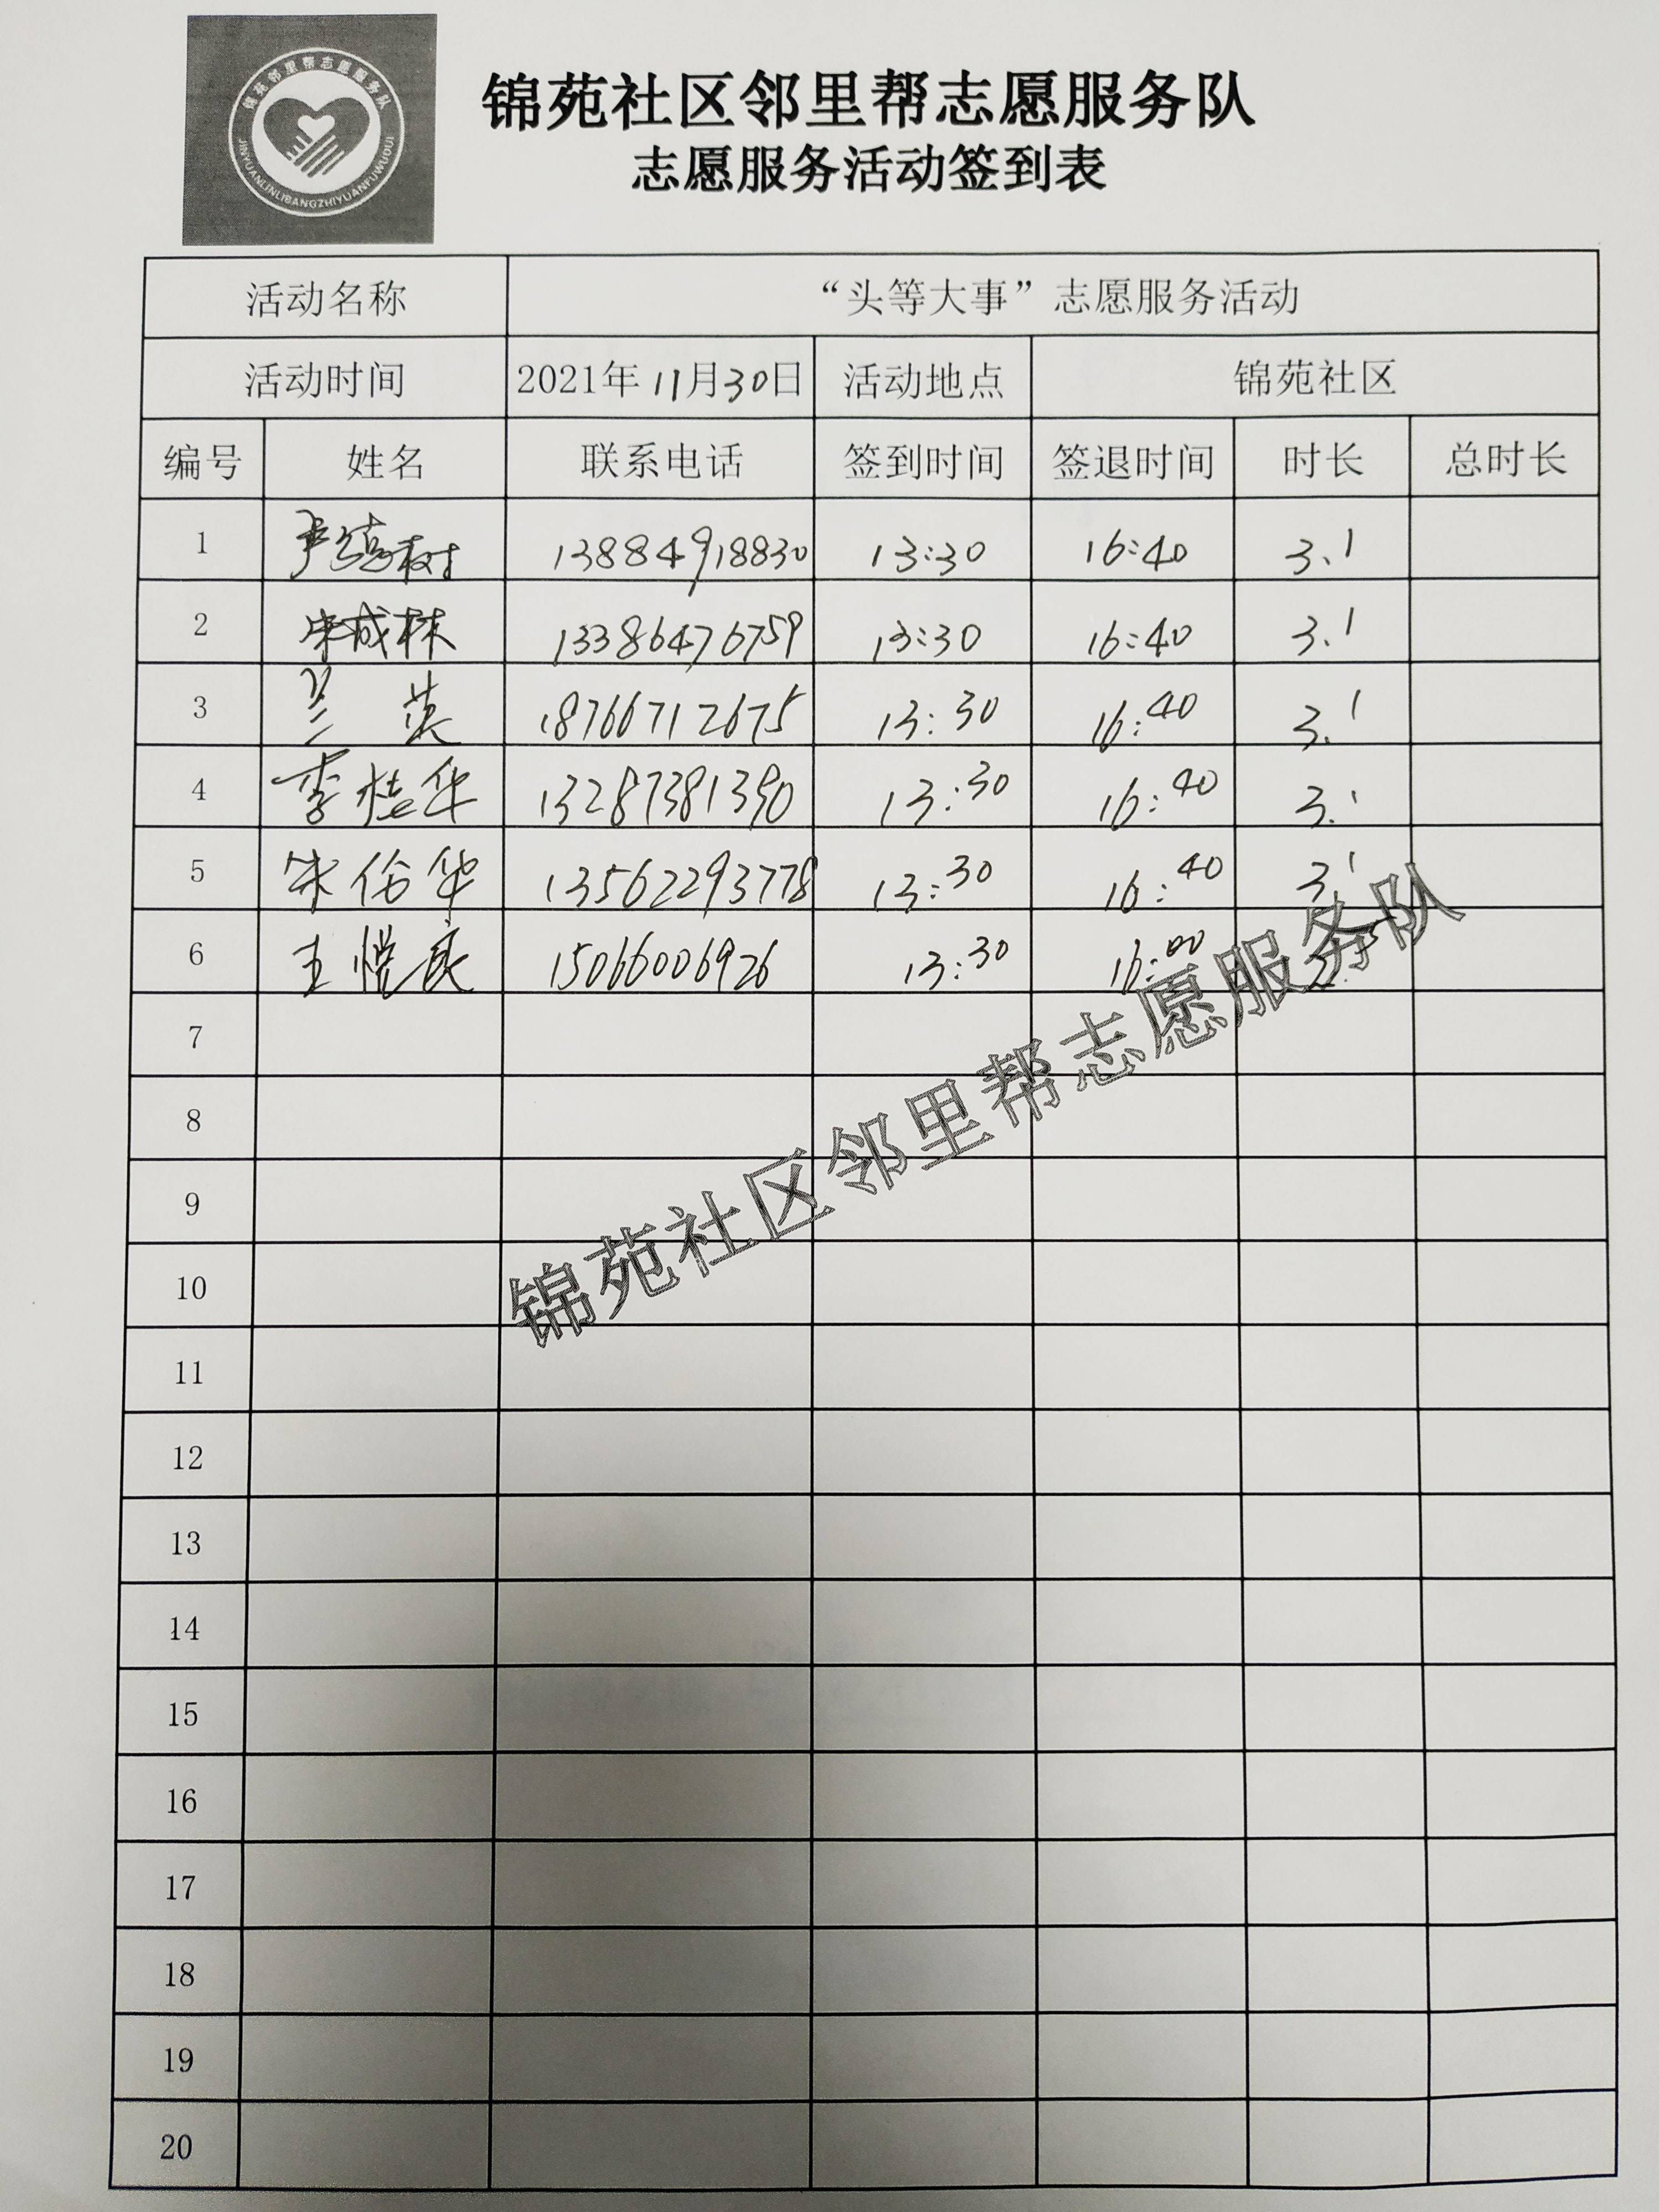 锦苑邻里帮志愿服务队
JINYUANLINLIBANGZHIYUANFUWUDUI
锦苑社区邻里帮志愿服务队
志愿服务活动签到表
活动名称 “头等大事”志愿服务活动
活动时间 2021年11月30日 活动地点 锦苑社区
编号 姓名 联系电话 签到时间 签退时间 时长 总时长
1 13884918830 13:30 16:40 3.1
2 宋成林 13386476759 13:30 16:40 3.1
3 兰英 18766712675 13:30 16:40 3.1
4 李桂华 13287381390 13:30 16:40 3.1
5 宋俗华 13562293778 13:30 16:40 3.1
6 王悦良 15066006926 13:30 16:00 2.5
7
8
9
10
11
12
13
14
15
16
17
18
19
20
锦苑社区邻里帮志愿服务队